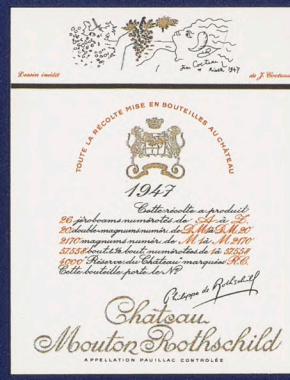 Jean Cocteau
1947
Dessin inédit
de J. Cocteau
TOUTE LA RÉCOLTE MISE EN BOUTEILLES AU CHÂTEAU
1947
Cette récolte a produit:
26 jéroboams numérotés de A à Z
20 double-magnums numér. de D.M.1 à D.M.20
2170 magnums numér. de M 1 à M 2170
bout. & ½ bout. numérotées de 1 à
4000 "Réserve du Château" marquées R.C.
Cette bouteille porte le Nº
Philippe de Rothschild
Château
Mouton Rothschild
APPELLATION PAUILLAC CONTROLÉE